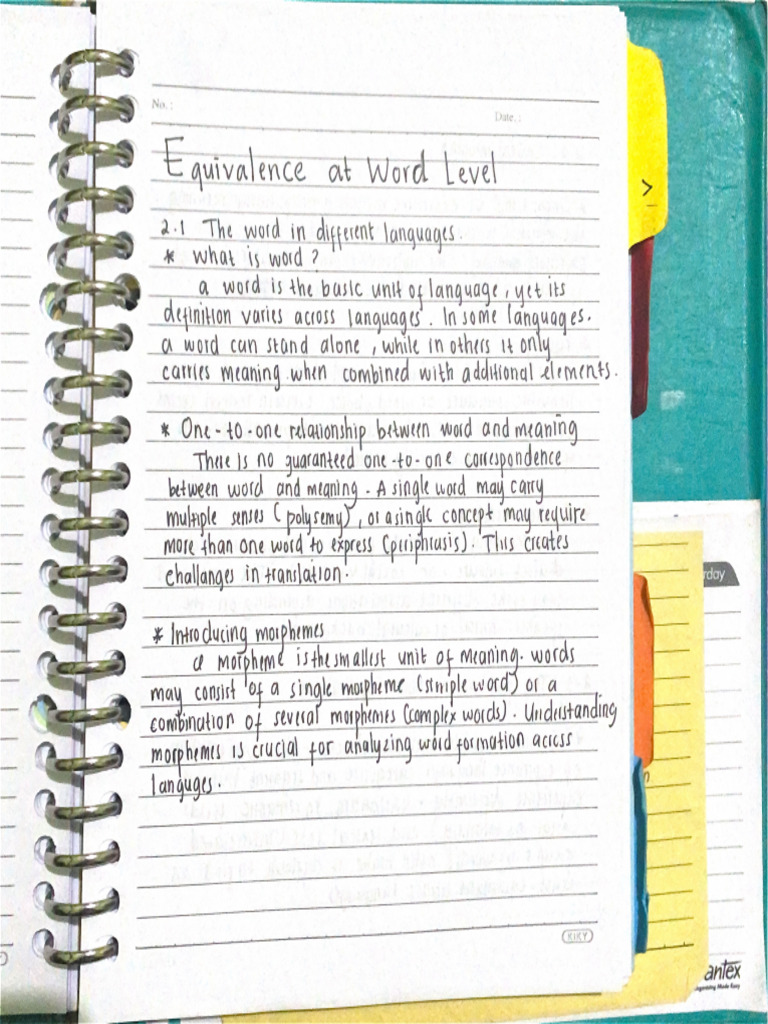 No. :
Date. :
Equivalence at Word Level
2.1 The word in different languages.
* What is word?
a word is the basic unit of language, yet its
definition varies across languages. In some languages.
a word can stand alone, while in others it only
carries meaning when combined with additional elements.
* One-to-one relationship between word and meaning
There is no guaranteed one-to-one correspondence
between word and meaning. A single word may carry
multiple senses (polysemy), or a single concept may require
more than one word to express (periphrasis). This creates
challanges in translation.
* Introducing morphemes
a morpheme is the smallest unit of meaning. words
may consist of a single morpheme (simple word) or a
combination of several morphemes (complex words). Understanding
morphemes is crucial for analyzing word formation across
languges.
KIKY
>
rday
antex
Organising Made Easy